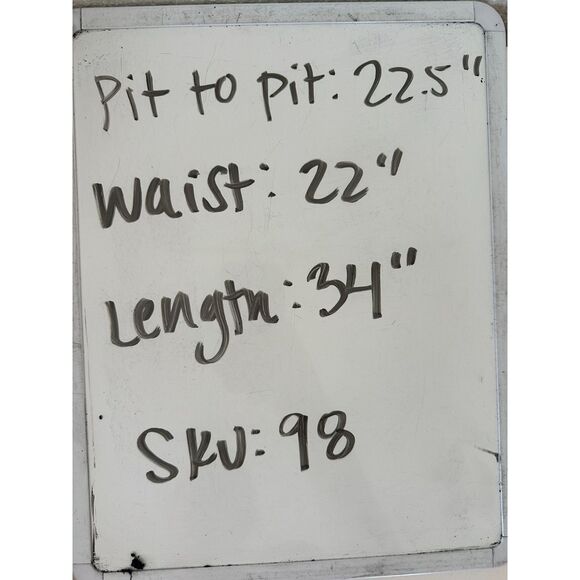 Pit to pit: 22.5"
Waist: 22"
Length: 34"
SKU: 98